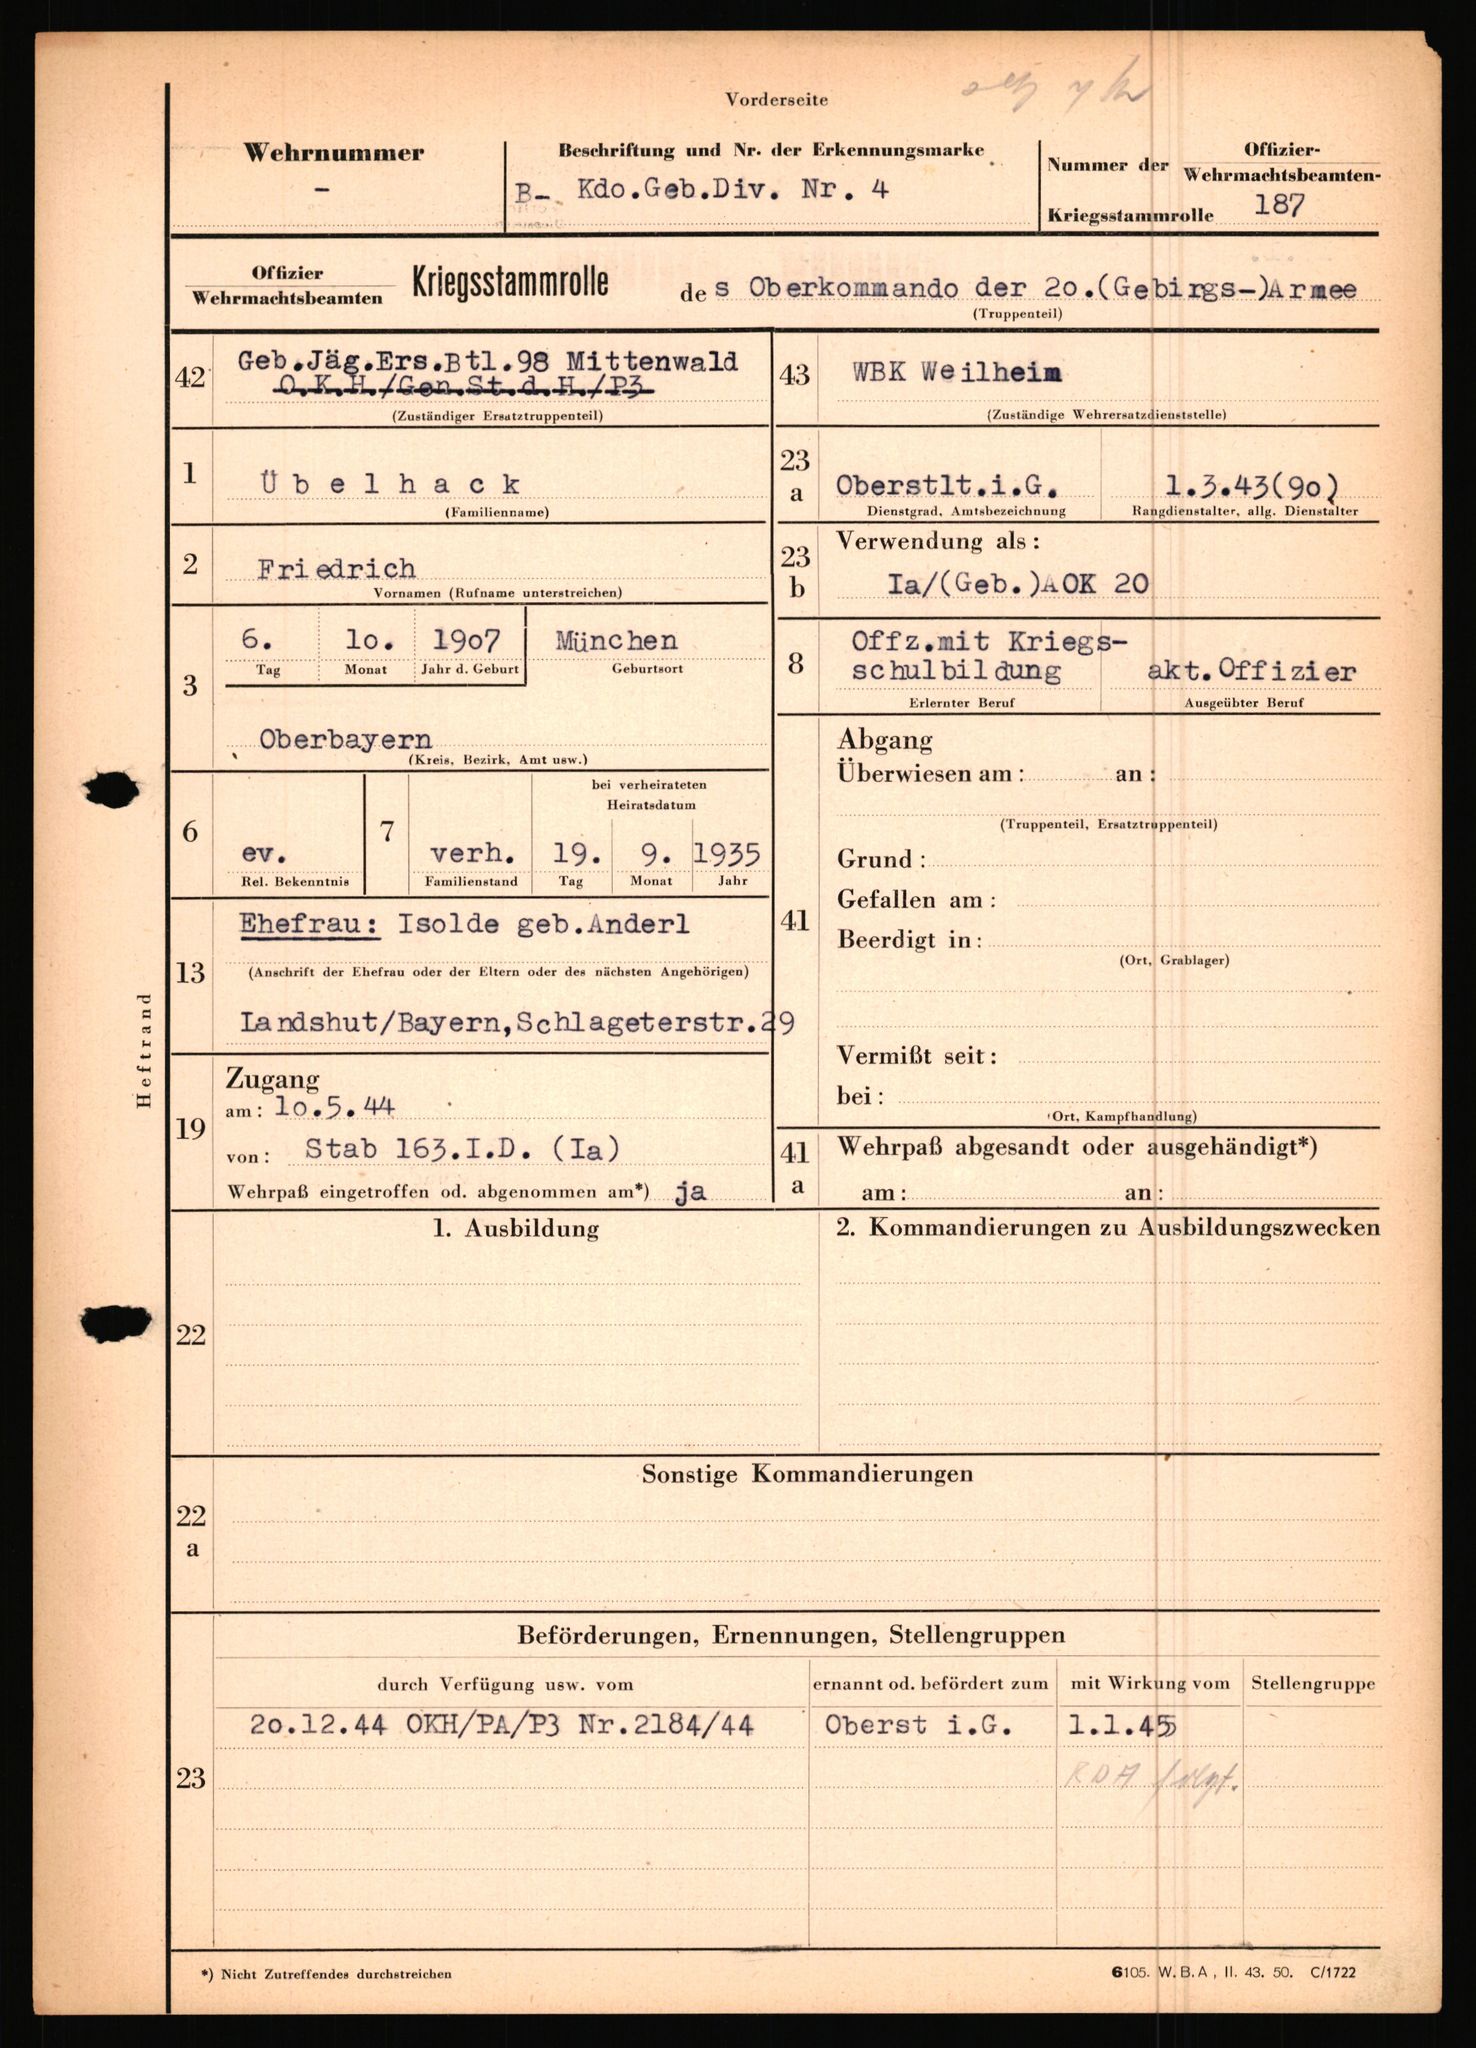 Vorderseite
Wehrnummer
–
Beschriftung und Nr. der Erkennungsmarke
B- Kdo.Geb.Div. Nr. 4
Nummer der Offizier- Wehrmachtsbeamten-
Kriegsstammrolle 187
Offizier
Wehrmachtsbeamten
Kriegsstammrolle
des Oberkommando der 2o.(Gebirgs-)Armee
(Truppenteil)
42
Geb.Jäg.Ers.Btl.98 Mittenwald
O.K.H./Gen.St.d.H./P3
(Zuständiger Ersatztruppenteil)
43
WBK Weilheim
(Zuständige Wehrersatzdienststelle)
1
Übelhack
(Familienname)
23 a
Oberstlt.i.G.
1.3.43(9o)
Dienstgrad, Amtsbezeichnung
Rangdienstalter, allg. Dienstalter
2
Friedrich
Vornamen (Rufname unterstreichen)
23 b
Verwendung als:
Ia/(Geb.)AOK 20
3
6. 1o. 19o7 München
Tag Monat Jahr d. Geburt Geburtsort
Oberbayern
(Kreis, Bezirk, Amt usw.)
8
Offz.mit Kriegs-
schulbildung
akt.Offizier
Erlernter Beruf
Ausgeübter Beruf
6
ev.
Rel. Bekenntnis
7
bei verheirateten
Heiratsdatum
verh. 19. 9. 1935
Familienstand Tag Monat Jahr
13
Ehefrau: Isolde geb.Anderl
(Anschrift der Ehefrau oder der Eltern oder des nächsten Angehörigen)
Landshut/Bayern,Schlageterstr.29
41
Abgang
Überwiesen am: an:
(Truppenteil, Ersatztruppenteil)
Grund:
Gefallen am:
Beerdigt in:
(Ort, Grablager)
Vermißt seit:
bei:
(Ort, Kampfhandlung)
Heftrand
19
Zugang
am: 1o.5.44
von: Stab 163.I.D. (Ia)
Wehrpaß eingetroffen od. abgenommen am*) ja
41 a
Wehrpaß abgesandt oder ausgehändigt*)
am: an:
22
1. Ausbildung
2. Kommandierungen zu Ausbildungszwecken
22 a
Sonstige Kommandierungen
23
Beförderungen, Ernennungen, Stellengruppen
durch Verfügung usw. vom
ernannt od. befördert zum
mit Wirkung vom
Stellengruppe
2o.12.44 OKH/PA/P3 Nr.2184/44
Oberst i.G.
1.1.45
RDA folgt.
*) Nicht Zutreffendes durchstreichen
6105. W.B.A, II. 43. 50. C/1722